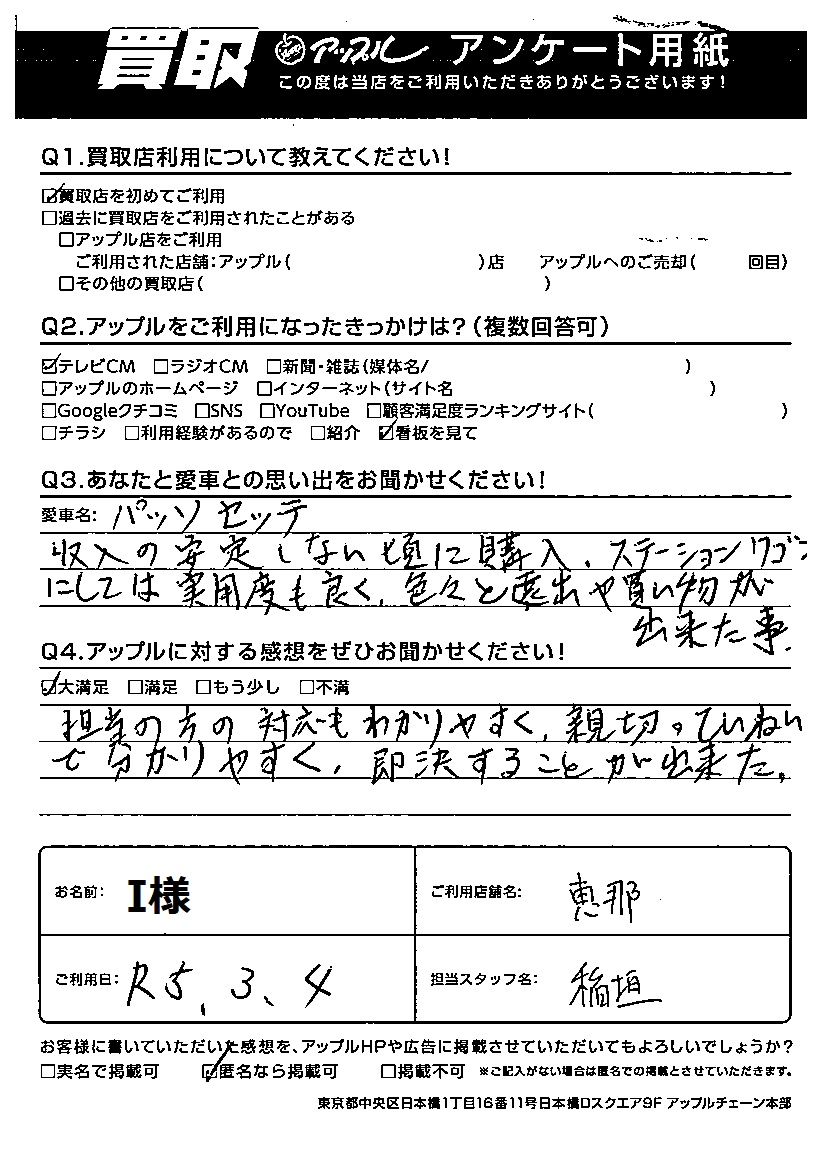 買取 アップル アンケート用紙
この度は当店をご利用いただきありがとうございます!
Q1.買取店利用について教えてください!
☑買取店を初めてご利用
□過去に買取店をご利用されたことがある
□アップル店をご利用
ご利用された店舗:アップル( )店 アップルへのご売却( 回目)
□その他の買取店( )
Q2.アップルをご利用になったきっかけは?(複数回答可)
☑テレビCM □ラジオCM □新聞・雑誌(媒体名/ )
□アップルのホームページ □インターネット(サイト名 )
□Googleクチコミ □SNS □YouTube □顧客満足度ランキングサイト( )
□チラシ □利用経験があるので □紹介 ☑看板を見て
Q3.あなたと愛車との思い出をお聞かせください!
愛車名: パッソセッテ
収入の安定しない頃に購入、ステーションワゴン
にしては実用度も良く、色々と遠出や買い物が
出来た事、
Q4.アップルに対する感想をぜひお聞かせください!
☑大満足 □満足 □もう少し □不満
担当の方の対応もわかりやすく、親切、ていねい
で分かりやすく、即決することが出来た。
お名前: I様 ご利用店舗名: 恵那
ご利用日: R5、3、4 担当スタッフ名: 稲垣
お客様に書いていただいた感想を、アップルHPや広告に掲載させていただいてもよろしいでしょうか?
□実名で掲載可 ☑匿名なら掲載可 □掲載不可 ※ご記入がない場合は匿名での掲載とさせていただきます。
東京都中央区日本橋1丁目16番11号日本橋Dスクエア9F アップルチェーン本部